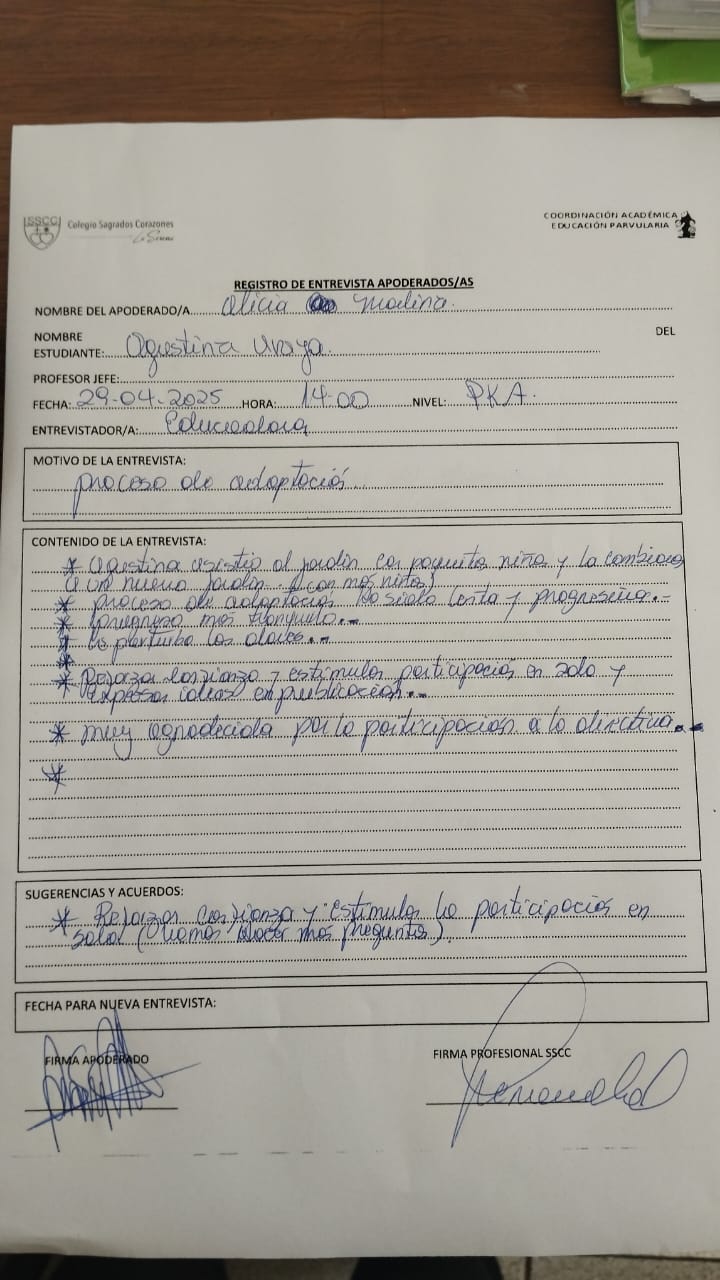 SSCC
Colegio Sagrados Corazones
La Serena
COORDINACIÓN ACADÉMICA
EDUCACIÓN PARVULARIA
REGISTRO DE ENTREVISTA APODERADOS/AS
NOMBRE DEL APODERADO/A Alicia Molina.
NOMBRE DEL
ESTUDIANTE: Agustina
PROFESOR JEFE:
FECHA: 29-04-2025 HORA: 14:00 NIVEL: PKA.
ENTREVISTADOR/A: Educadora
MOTIVO DE LA ENTREVISTA:
proceso de adaptación
CONTENIDO DE LA ENTREVISTA:
* Agustina asistió al jardín con poquitos niños y la
a un nuevo jardín. (con más niños)
* proceso de adaptación ha sido lenta y progresiva.-
* más tranquila.-
* le perturba los
*
* Reforzar confianza y estimular participación en sala y
expresar ideas en
* muy agradecida por la participación a la directiva.
*
SUGERENCIAS Y ACUERDOS:
* Reforzar confianza y estimular la participación en
sala (vamos hacer más preguntas)
FECHA PARA NUEVA ENTREVISTA:
FIRMA APODERADO FIRMA PROFESIONAL SSCC